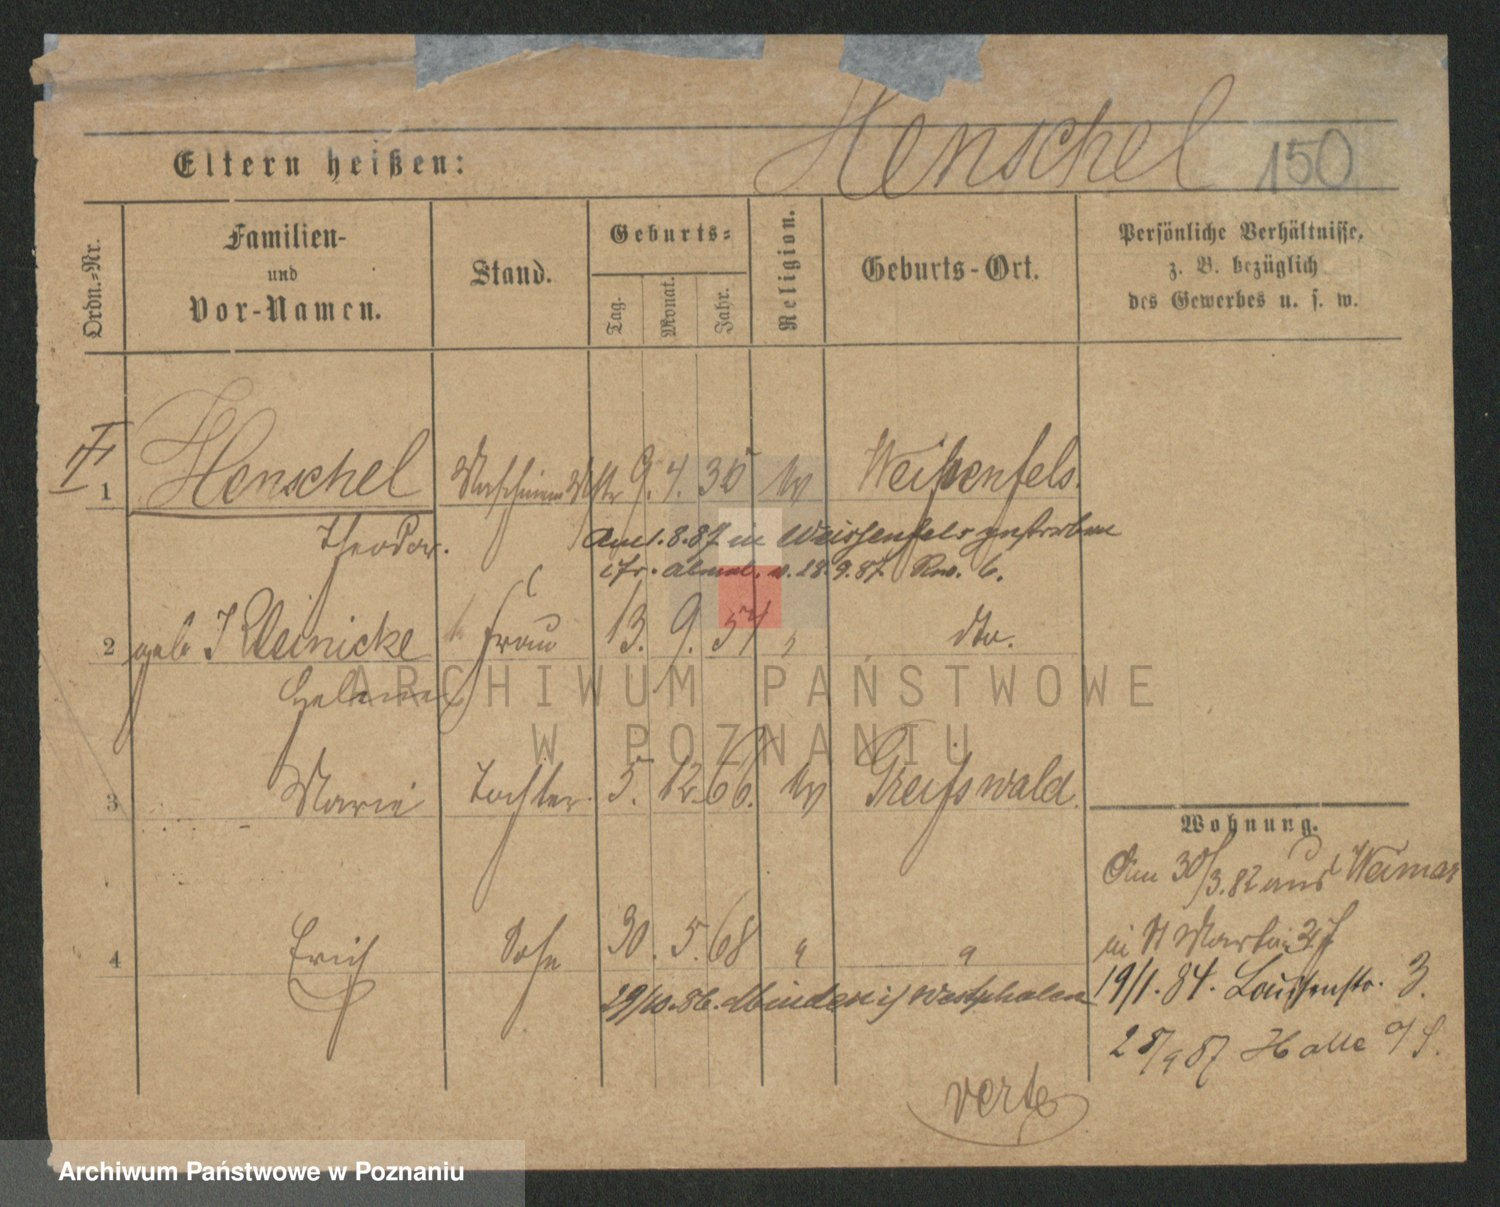 Henschel 150
Eltern heißen:
Ordn.-Nr.
Familien-
und
Vor-Namen.
Stand.
Geburts-
Tag.
Monat.
Jahr.
Religion.
Geburts-Ort.
Persönliche Verhältnisse,
z. B. bezüglich
des Gewerbes u. s. w.
1 Henschel Maschinen Mstr 9. 4. 35 ev Weißenfels.
Theodor.
Am 1.8.87 in Weissenfels gestorben
v. 28.9.87. Rev. 6.
2 geb Reinicke Frau 13. 9. dto.
Helene
3 Marie Tochter. 5. 12. 66. ev Greifswald.
4 Erich Sohn 30. 5. 68 " "
29/10.86. Minden i/ Westphalen
Wohnung.
Am 30/3.82 aus Weimar
in St Martin 37
19/1. 84. Louisenstr. 3.
28/9 87 Halle a/S.
verte
ARCHIWUM PAŃSTWOWE
W POZNANIU
Archiwum Państwowe w Poznaniu